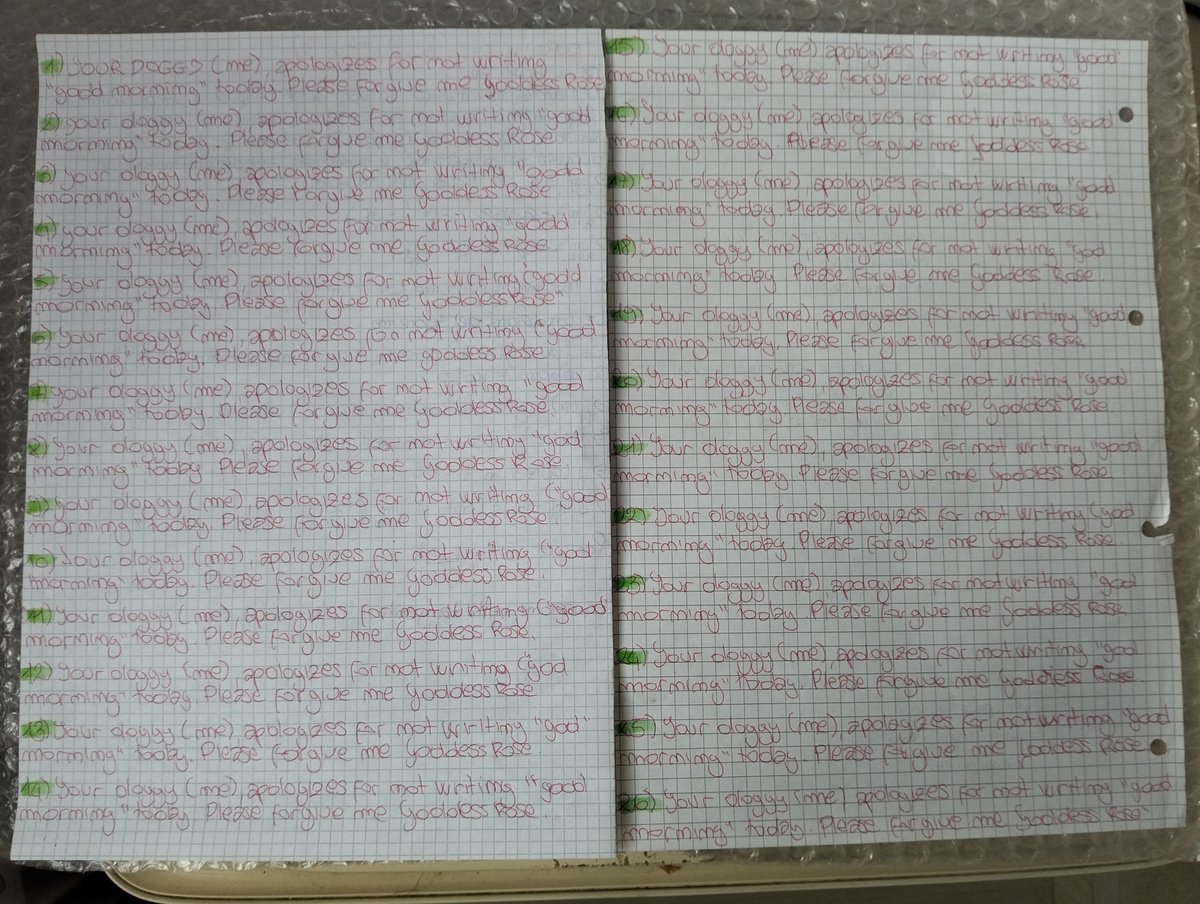 1) YOUR DOGGO (me), apologizes for not writing
"good morning" today. Please forgive me Goddess Rose
2) your doggy (me), apologizes for not writing "good
morming" today. Please forgive me Goddess Rose
3) your doggy (me), apologizes for not writing "godd
morming" today. Please forgive me Goddess Rose
4) your doggy (me), apologizes for not writing "godd
morming" today. Please forgive me Goddess Rose.
5) your doggy (me), apologizes for not writing ("godd
morming" today. Please forgive me Goddess Rose"
6) Your doggy (me), apologizes for not writing ("good
morming" today. Please forgive me goddess Rose
7) your doggy (me), apologizes for not writing "good
morming" today. Please forgive me Goddess Rose.
8) Your doggy (me), apologizes for not writing "god
morming" today. Please forgive me Goddess Rose.
9) your doggy (me), apologizes for not writing ("good
morming" today. Please forgive me Goddess Rose.
10) Your doggy (me), apologizes for not writing ("good
"morming" today. Please forgive me Goddess Rose.
11) Your doggy (me), apologizes for not writing ("good
morming" today. Please forgive me Goddess Rose.
12) Your doggy (me), apologizes for not writing ("god
morming" today. Please forgive me Goddess Rose
13) Your doggy (me), apologizes for not writing "god"
morming" today. Please forgive me Goddess Rose
14) Your doggy (me), apologizes for not writing "godd
morming" today. Please forgive me Goddess Rose.
15) Your doggy (me) apologizes for not writing "good"
morming" today. Please forgive me Goddess Rose
16) Your doggy (me), apologizes for not writing "good
morming" today. Please forgive me Goddess Rose
17) Your doggy (me), apologizes for not writing "god
morming" today. Please forgive me Goddess Rose.
18) Your doggy (me), apologizes for not writing "god
morming" today. Please forgive me Goddess Rose.
19) Your doggy (me), apologizes for not writing "good
morming" today. Please forgive me Goddess Rose.
20) Your doggy (me), apologizes for not writing "good
morming" today. Please forgive me Goddess Rose.
21) Your doggy (me), apologizes for not writing "good
morming" today. Please forgive me Goddess Rose
22) Your doggy (me), apologizes for not writing (god
morming" today. Please forgive me Goddess Rose.
23) Your doggy (me), apologizes for not writing "god
morming" today. Please forgive me Goddess Rose
24) Your doggy (me), apologizes for not writing "god
morming" today. Please forgive me Goddess Rose
25) Your doggy (me), apologizes for not writing "good
morming" today. Please forgive me Goddess Rose
26) Your doggy (me) apologizes for not writing "good
morming" today. Please forgive me Goddess Rose"